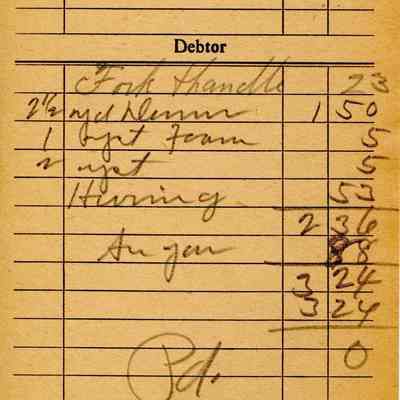 Debtor
Fork Handle 23
2½ yd Denim 1 50
1 yst Foam 5
2 yst 5
Herring 53
2 36
88
3 24
3 24
0
Pd.